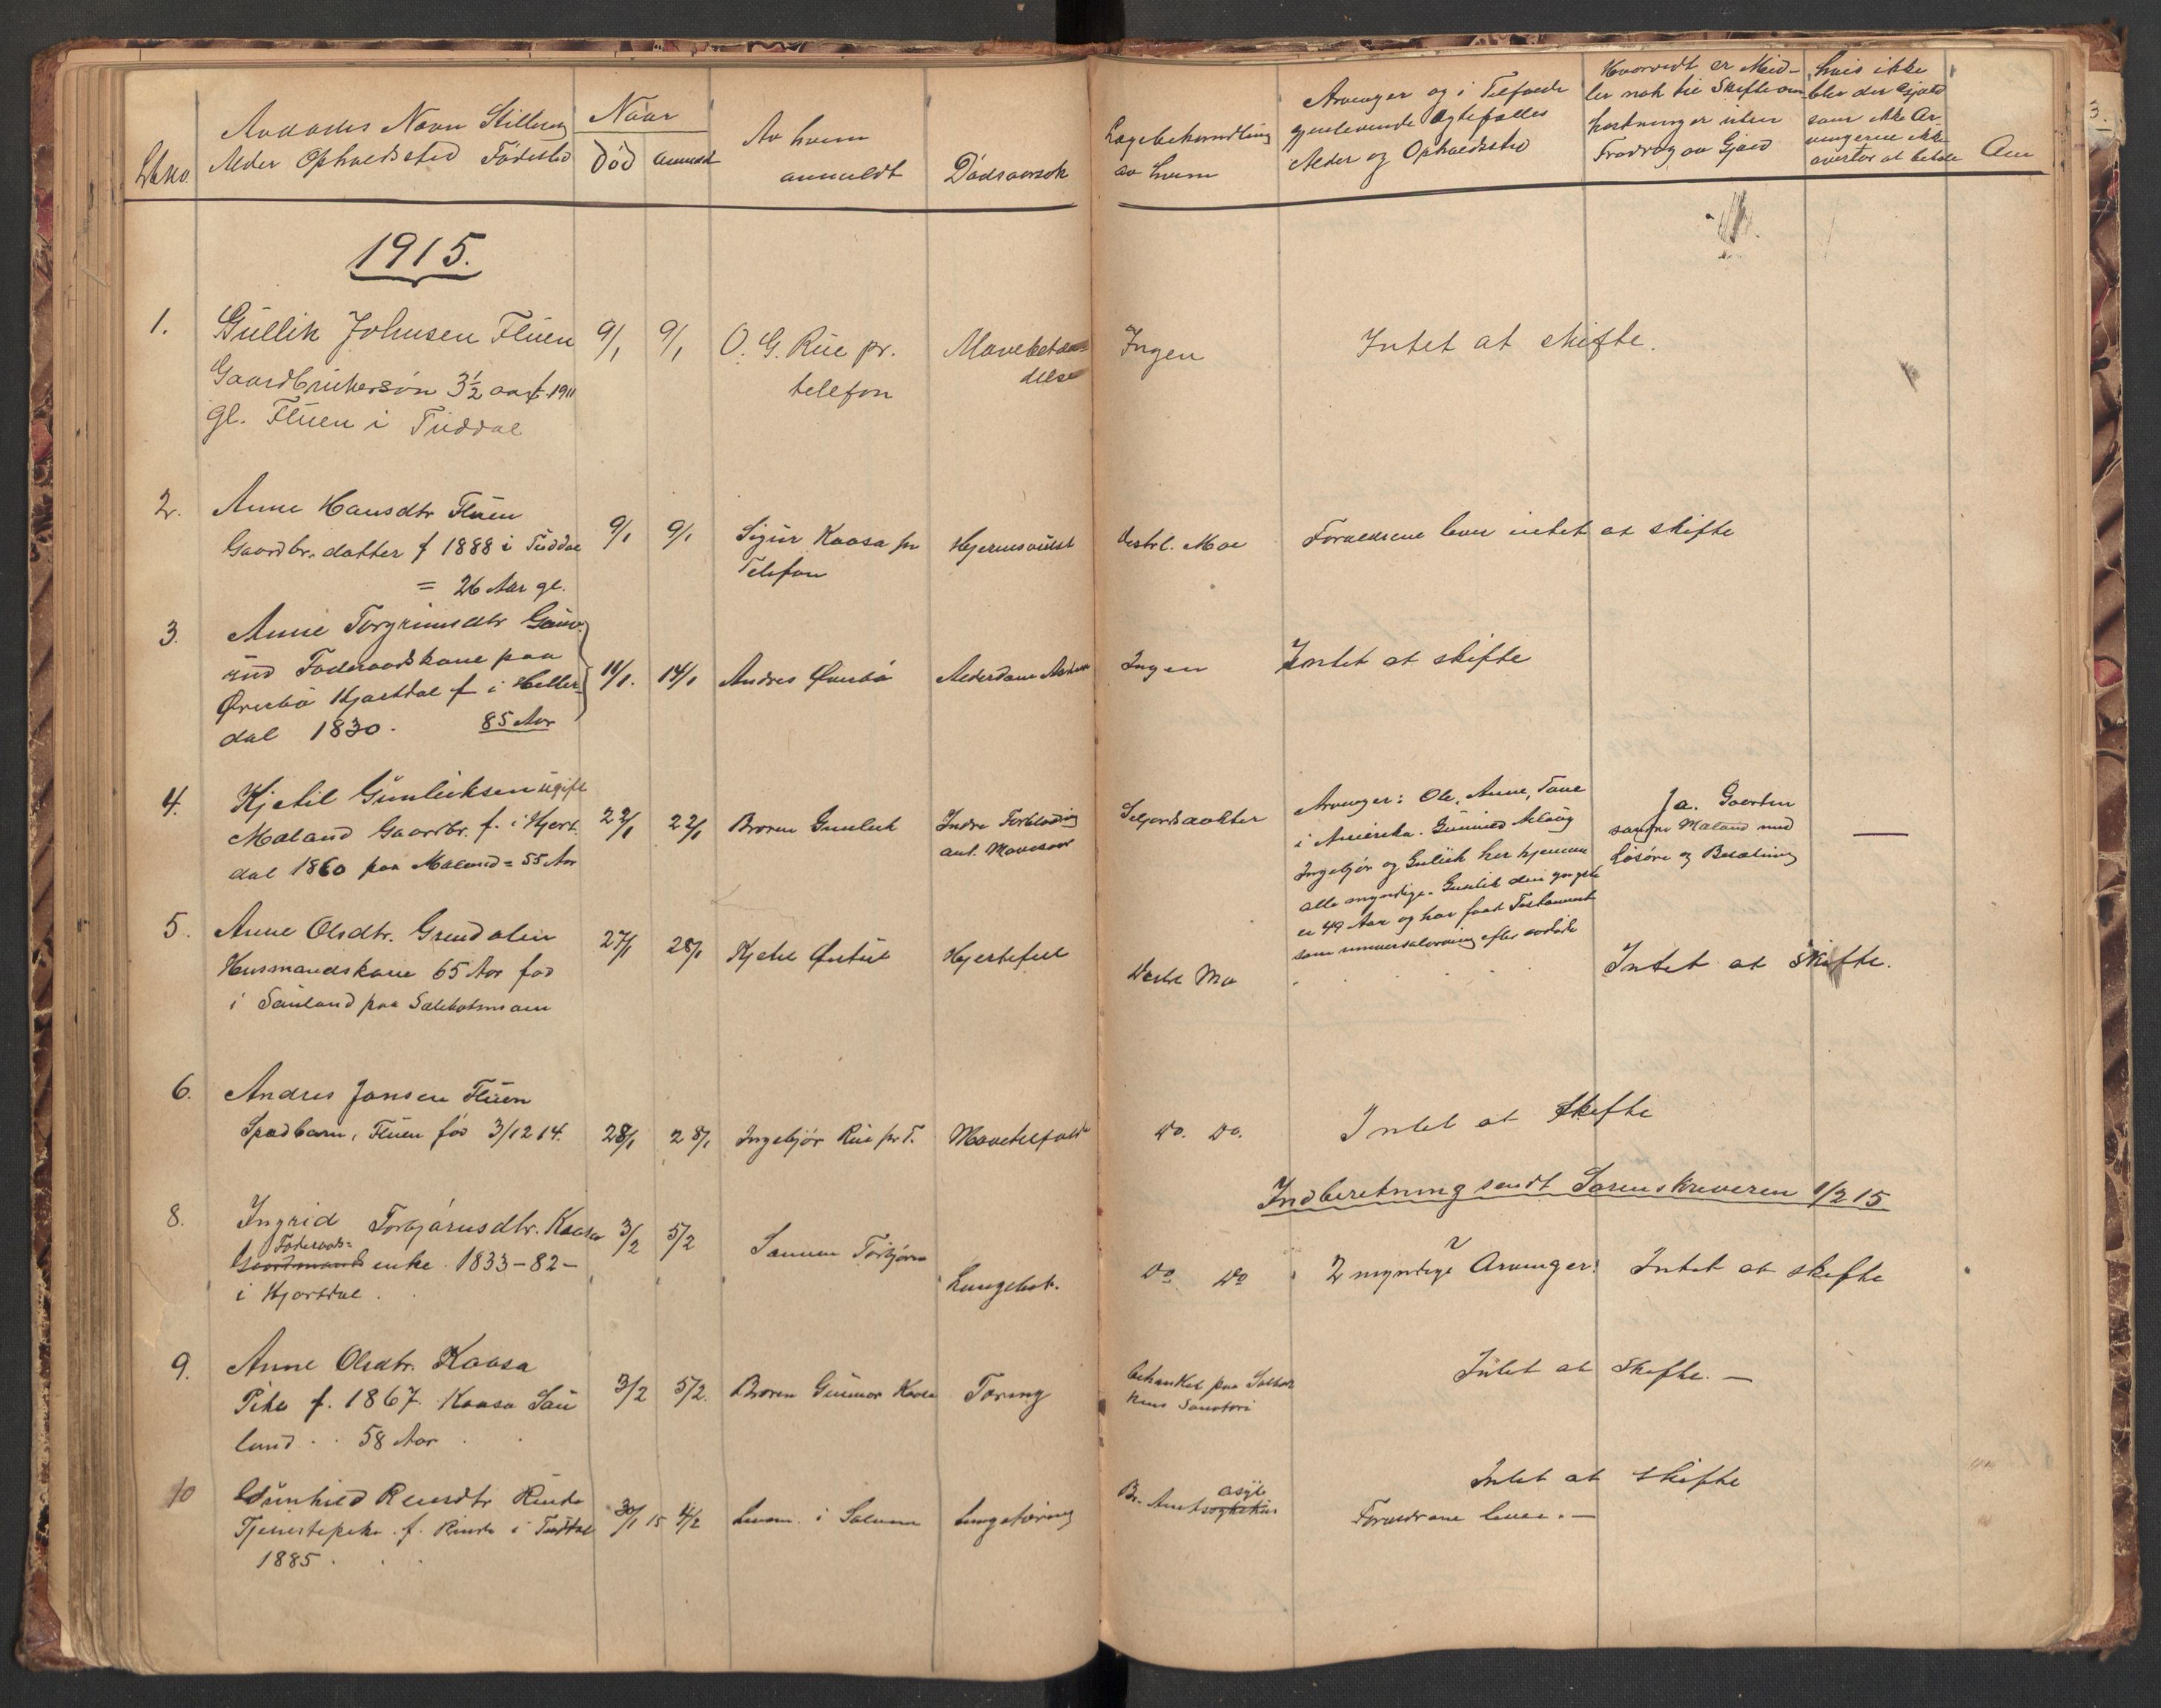 Lbno.
Avdødes Navn Stilling
Alder Opholdssted Fødested
Naar
Død anmeldt
Av hvem
anmeldt
Dødsaarsak
Lægebehandling
av hvem
Arvinger og i Tilfælde
gjenlevende Ægtefælles
Alder og Opholdssted
Hvorvidt er Mid-
ler nok til Skifteom-
kostninger uten
Fradrag av Gjæld
hvis ikke
blev der Gjæld
som ikke Ar-
vingerne ikke
overtar at betale
Am
3.
1915.
1.
Gullik Johnsen Fluen
Gaardbrukersøn 3½ aar f. 1911
gl. Fluen i Tuddal
9/1 9/1
O. G. Rue pr.
telefon
Mavebetæn-
delse
Ingen
Intet at skifte.
2.
Anne Hansdtr Fluen
Gaardbr. datter f 1888 i Tuddal
= 26 Aar gl.
9/1 9/1
Sigur Kaasa pr
Telefon
Hjernesvulst
Distrl. Moe
Forældrene lever intet at skifte
3.
Anne Torgrimsdtr
Foderaadskone paa
Øverbø Hjartdal f i Hitter-
dal 1830. 85 Aar
11/1. 14/1
Andres Øverbø
Alderdom
Ingen
Intet at skifte
4.
Kjetil Gunleiksen ugift
Maland Gaardbr. f. i Hjart-
dal 1860 paa Maland = 55 Aar
22/1 22/1
Broren Gunleik
Indre Forblødning
ant. Mavesaar
Seljordsdokter
Arvinger: Ole, Anne, Tone
i Amerika. Gunnild Aslaug
Ingebjør og Gulik her hjemme
alle myndige. Gunleik den yngste
er 49 Aar og har faat Testament
som universalarving efter avdøde
Ja. Gaarden
søndre Maland med
Løsøre og Besætning
—
5.
Anne Olsdtr. Grendalen
Husmandskone 65 Aar fød
i Sauland paa
27/1 28/1
Kjetil
Hjertefeil
Distr Mo
Intet at skifte.
6.
Andres Jonsen Fluen
Spædbarn, Fluen fød 3/12 14.
28/1 28/1
Ingebjør Rue pr T.
Mavetilfælde
Do. Do.
Intet at skifte
Indberetning sendt Sorenskriveren 1/2 15
8.
Ingrid Torbjørnsdtr. Kaasa
Føderaads=
Gaardmands enke 1833 – 82 –
i Hjartdal.
3/2 5/2
Sønnen Torbjørn
Lungebet.
Do Do
2 myndige Arvinger: Intet at skifte
9.
Anne Olsdtr. Kaasa
Pike f. 1867. Kaasa Sau
land 58 Aar
3/2 5/2.
Broren Gunnar Kaasa
Tæring
behandlet paa
Sanatori
Intet at skifte. —
10
Gunhild Reiersdtr Rinde
Tjenestepike. f. Rinde i Tuddal
1885.
30/1 15 4/2
Lensm. i Solum
Lungetæring
Br. Amtssykehus
asyl
Intet at skifte
Forældrene lever. —